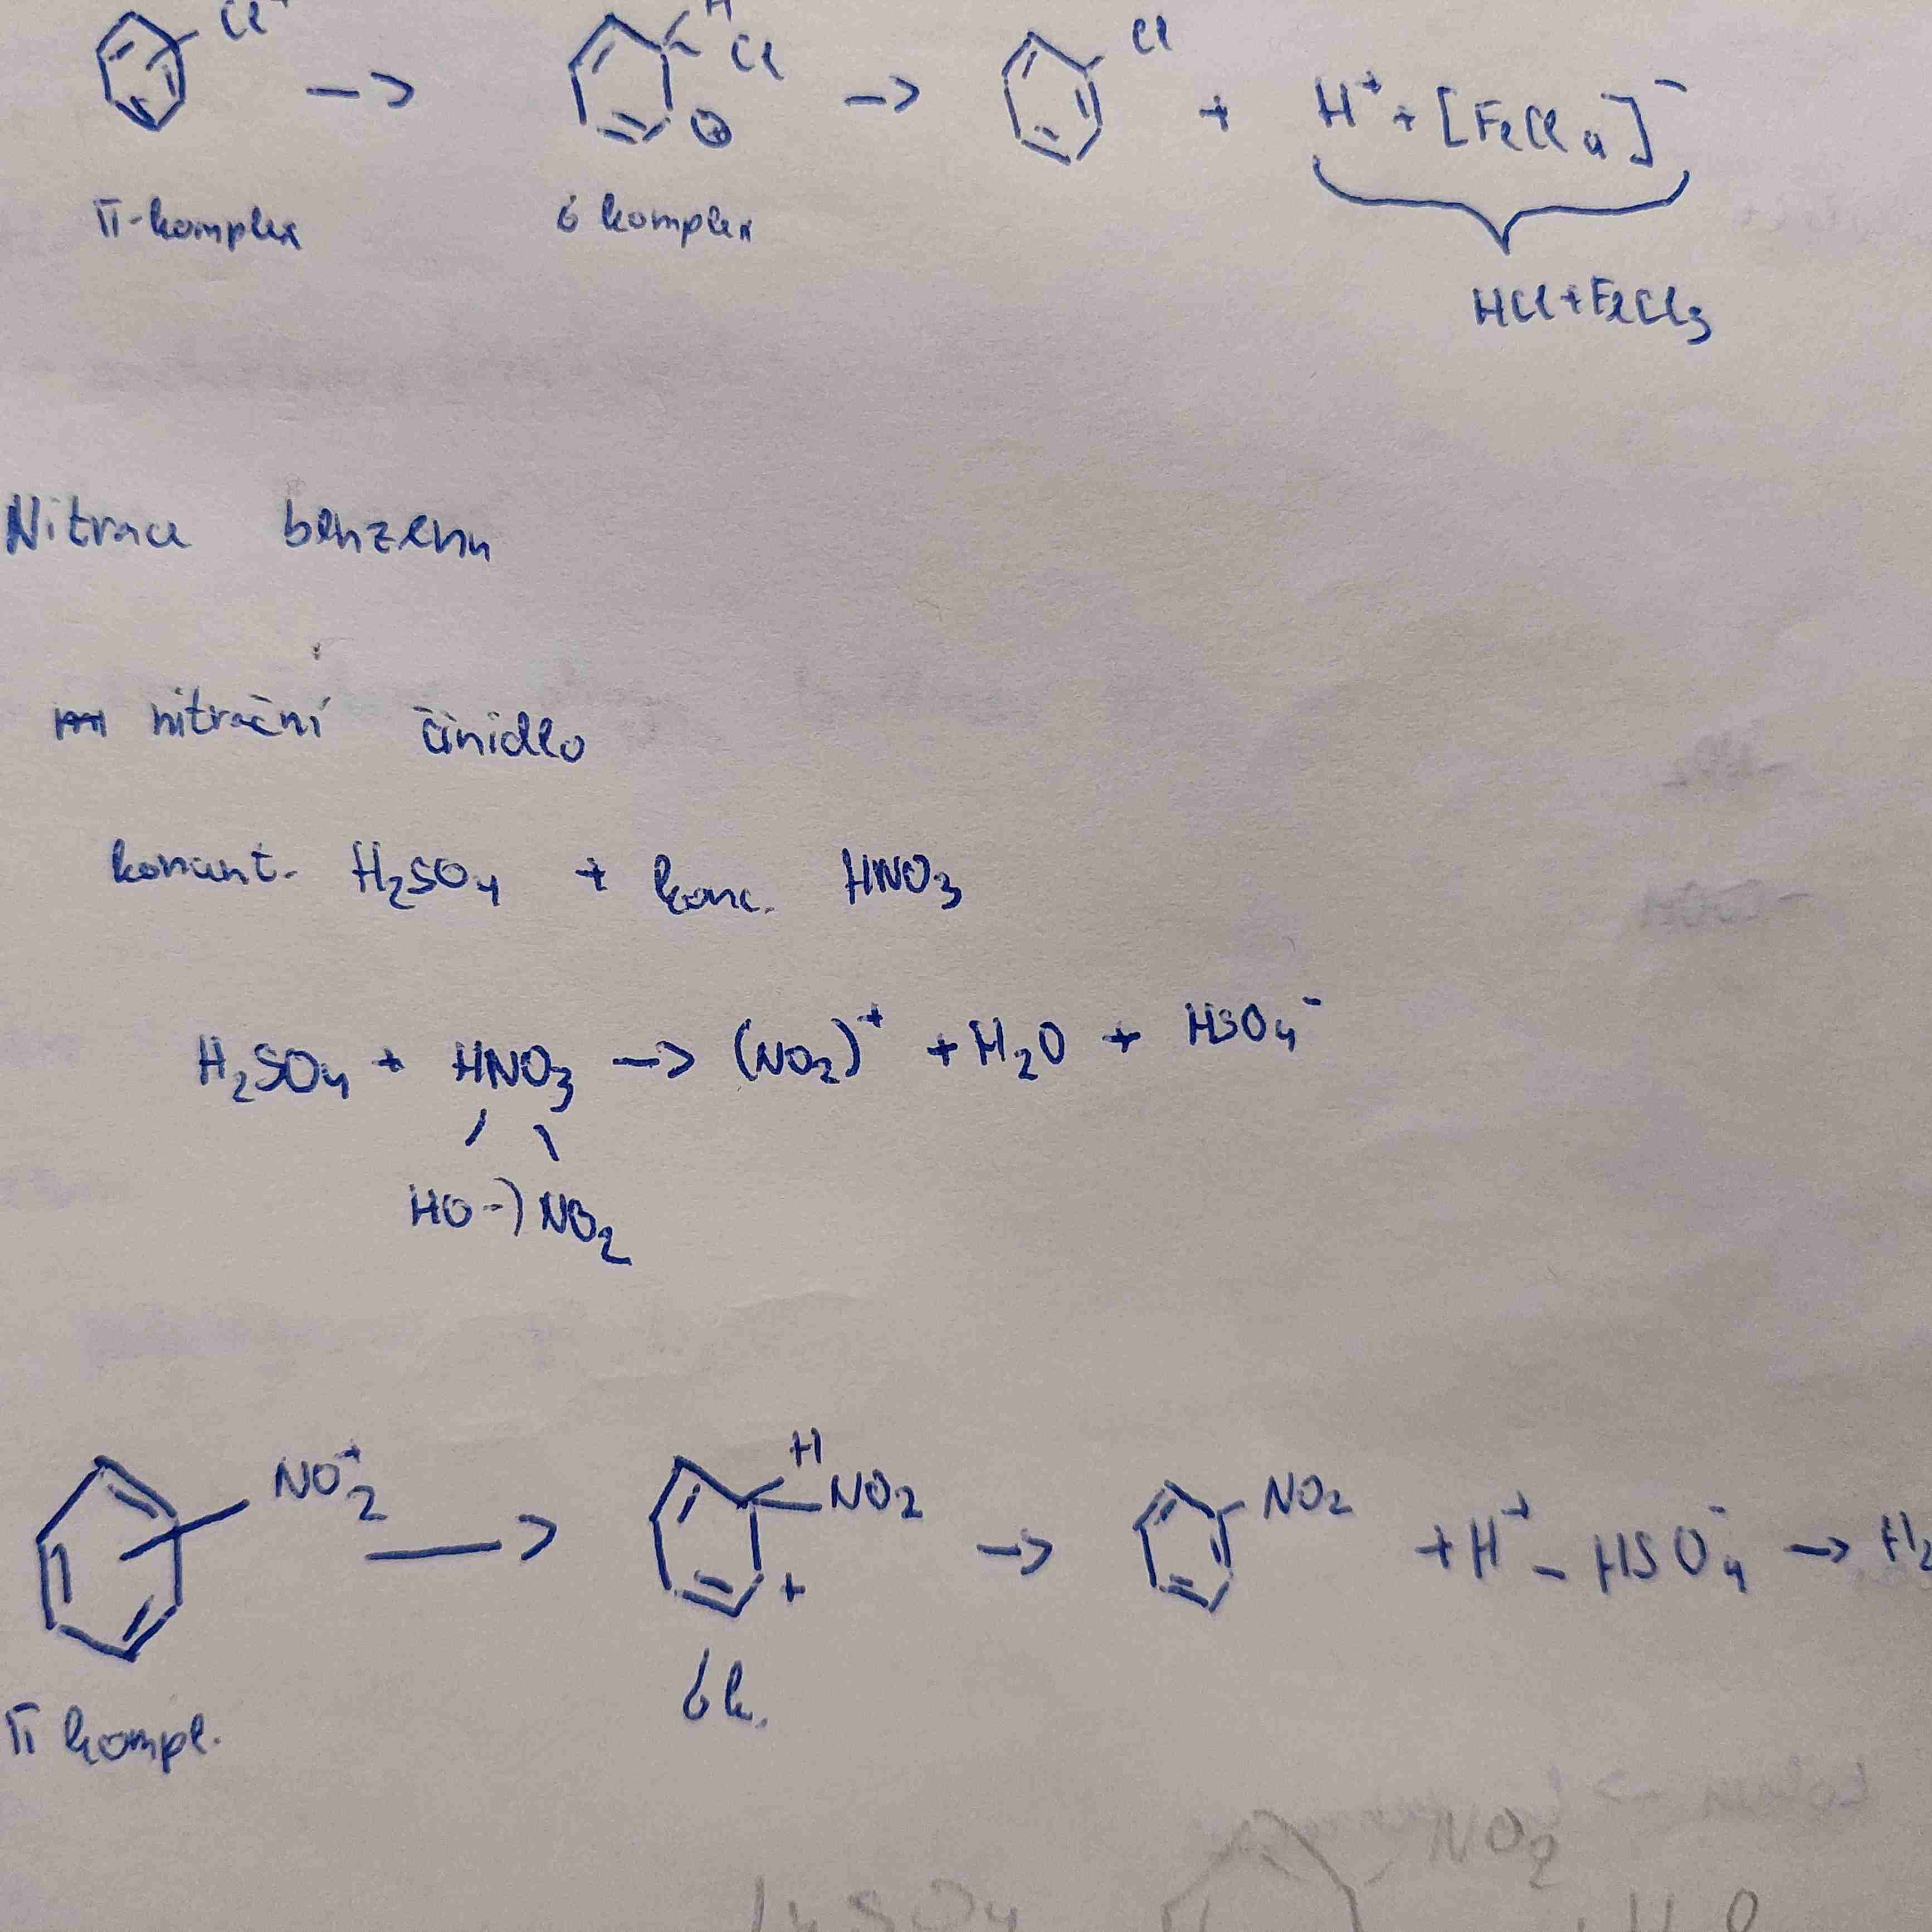 Cl⁺ → H Cl ⊕ → Cl + H⁺ + [FeCl₄]⁻
π-komplex   σ komplex
HCl + FeCl₃
Nitrace benzenu
nitrační činidlo
koncent. H₂SO₄ + konc. HNO₃
H₂SO₄ + HNO₃ → (NO₂)⁺ + H₂O + HSO₄⁻
HO -) NO₂
NO₂⁺ → H NO₂ + → NO₂ + H⁺ - HSO₄⁻ → H₂
σ k.
π kompl.
NO₂
H₂SO₄   H₂O